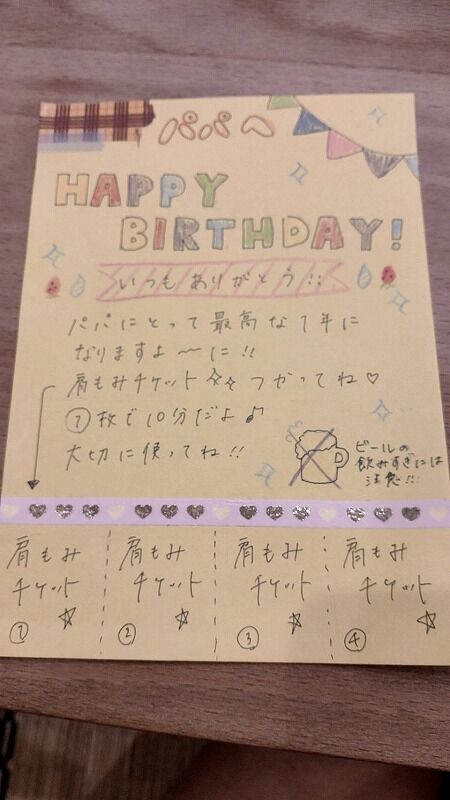 パパへ
HAPPY
BIRTHDAY!
いつもありがとう!!
パパにとって最高な1年に
なりますよ〜に!!
肩もみチケット☆☆つかってね♡
①枚で10分だよ♪
大切に使ってね!!
ビールの
飲みすぎには
注意!!!
肩もみ
チケット☆
①
肩もみ
チケット☆
②
肩もみ
チケット☆
③
肩もみ
チケット☆
④